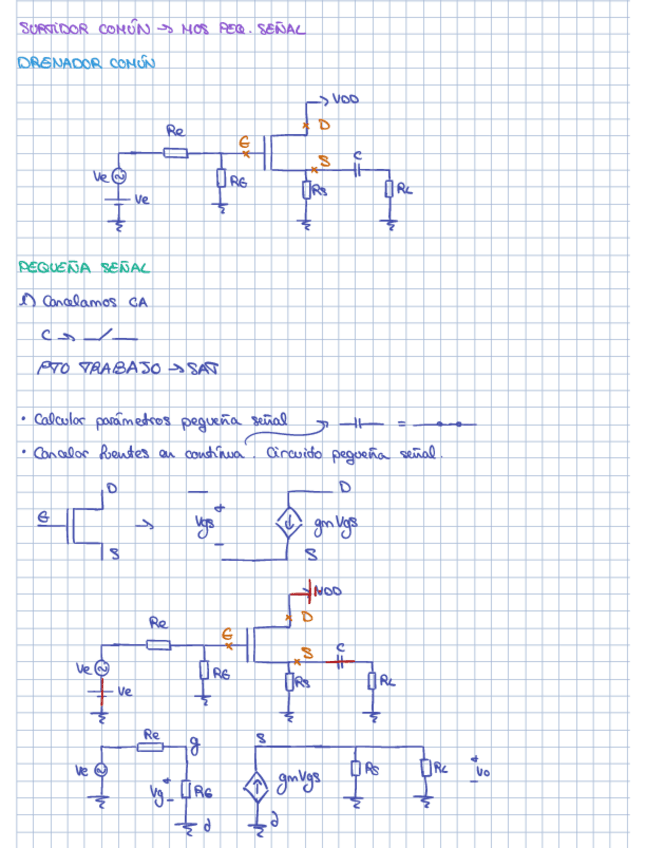 SURTIDOR COMÚN → MOS PEQ. SEÑAL
DRENADOR COMÚN
VDD
D
Re
G
S
C
Ve
RG
RS
RL
Ve
PEQUEÑA SEÑAL
1) Cancelamos CA
C →
PTO TRABAJO → SAT
• Calcular parámetros pequeña señal → =
• Cancelar fuentes en contínua. Circuito pequeña señal.
D
D
G
→
Vgs
+
-
gmVgs
S
S
VDD
D
Re
G
S
C
Ve
RG
RS
RL
Ve
Re
g
S
Ve
Vg
+
-
RG
gmVgs
RS
RL
+
-
Vo
d
d